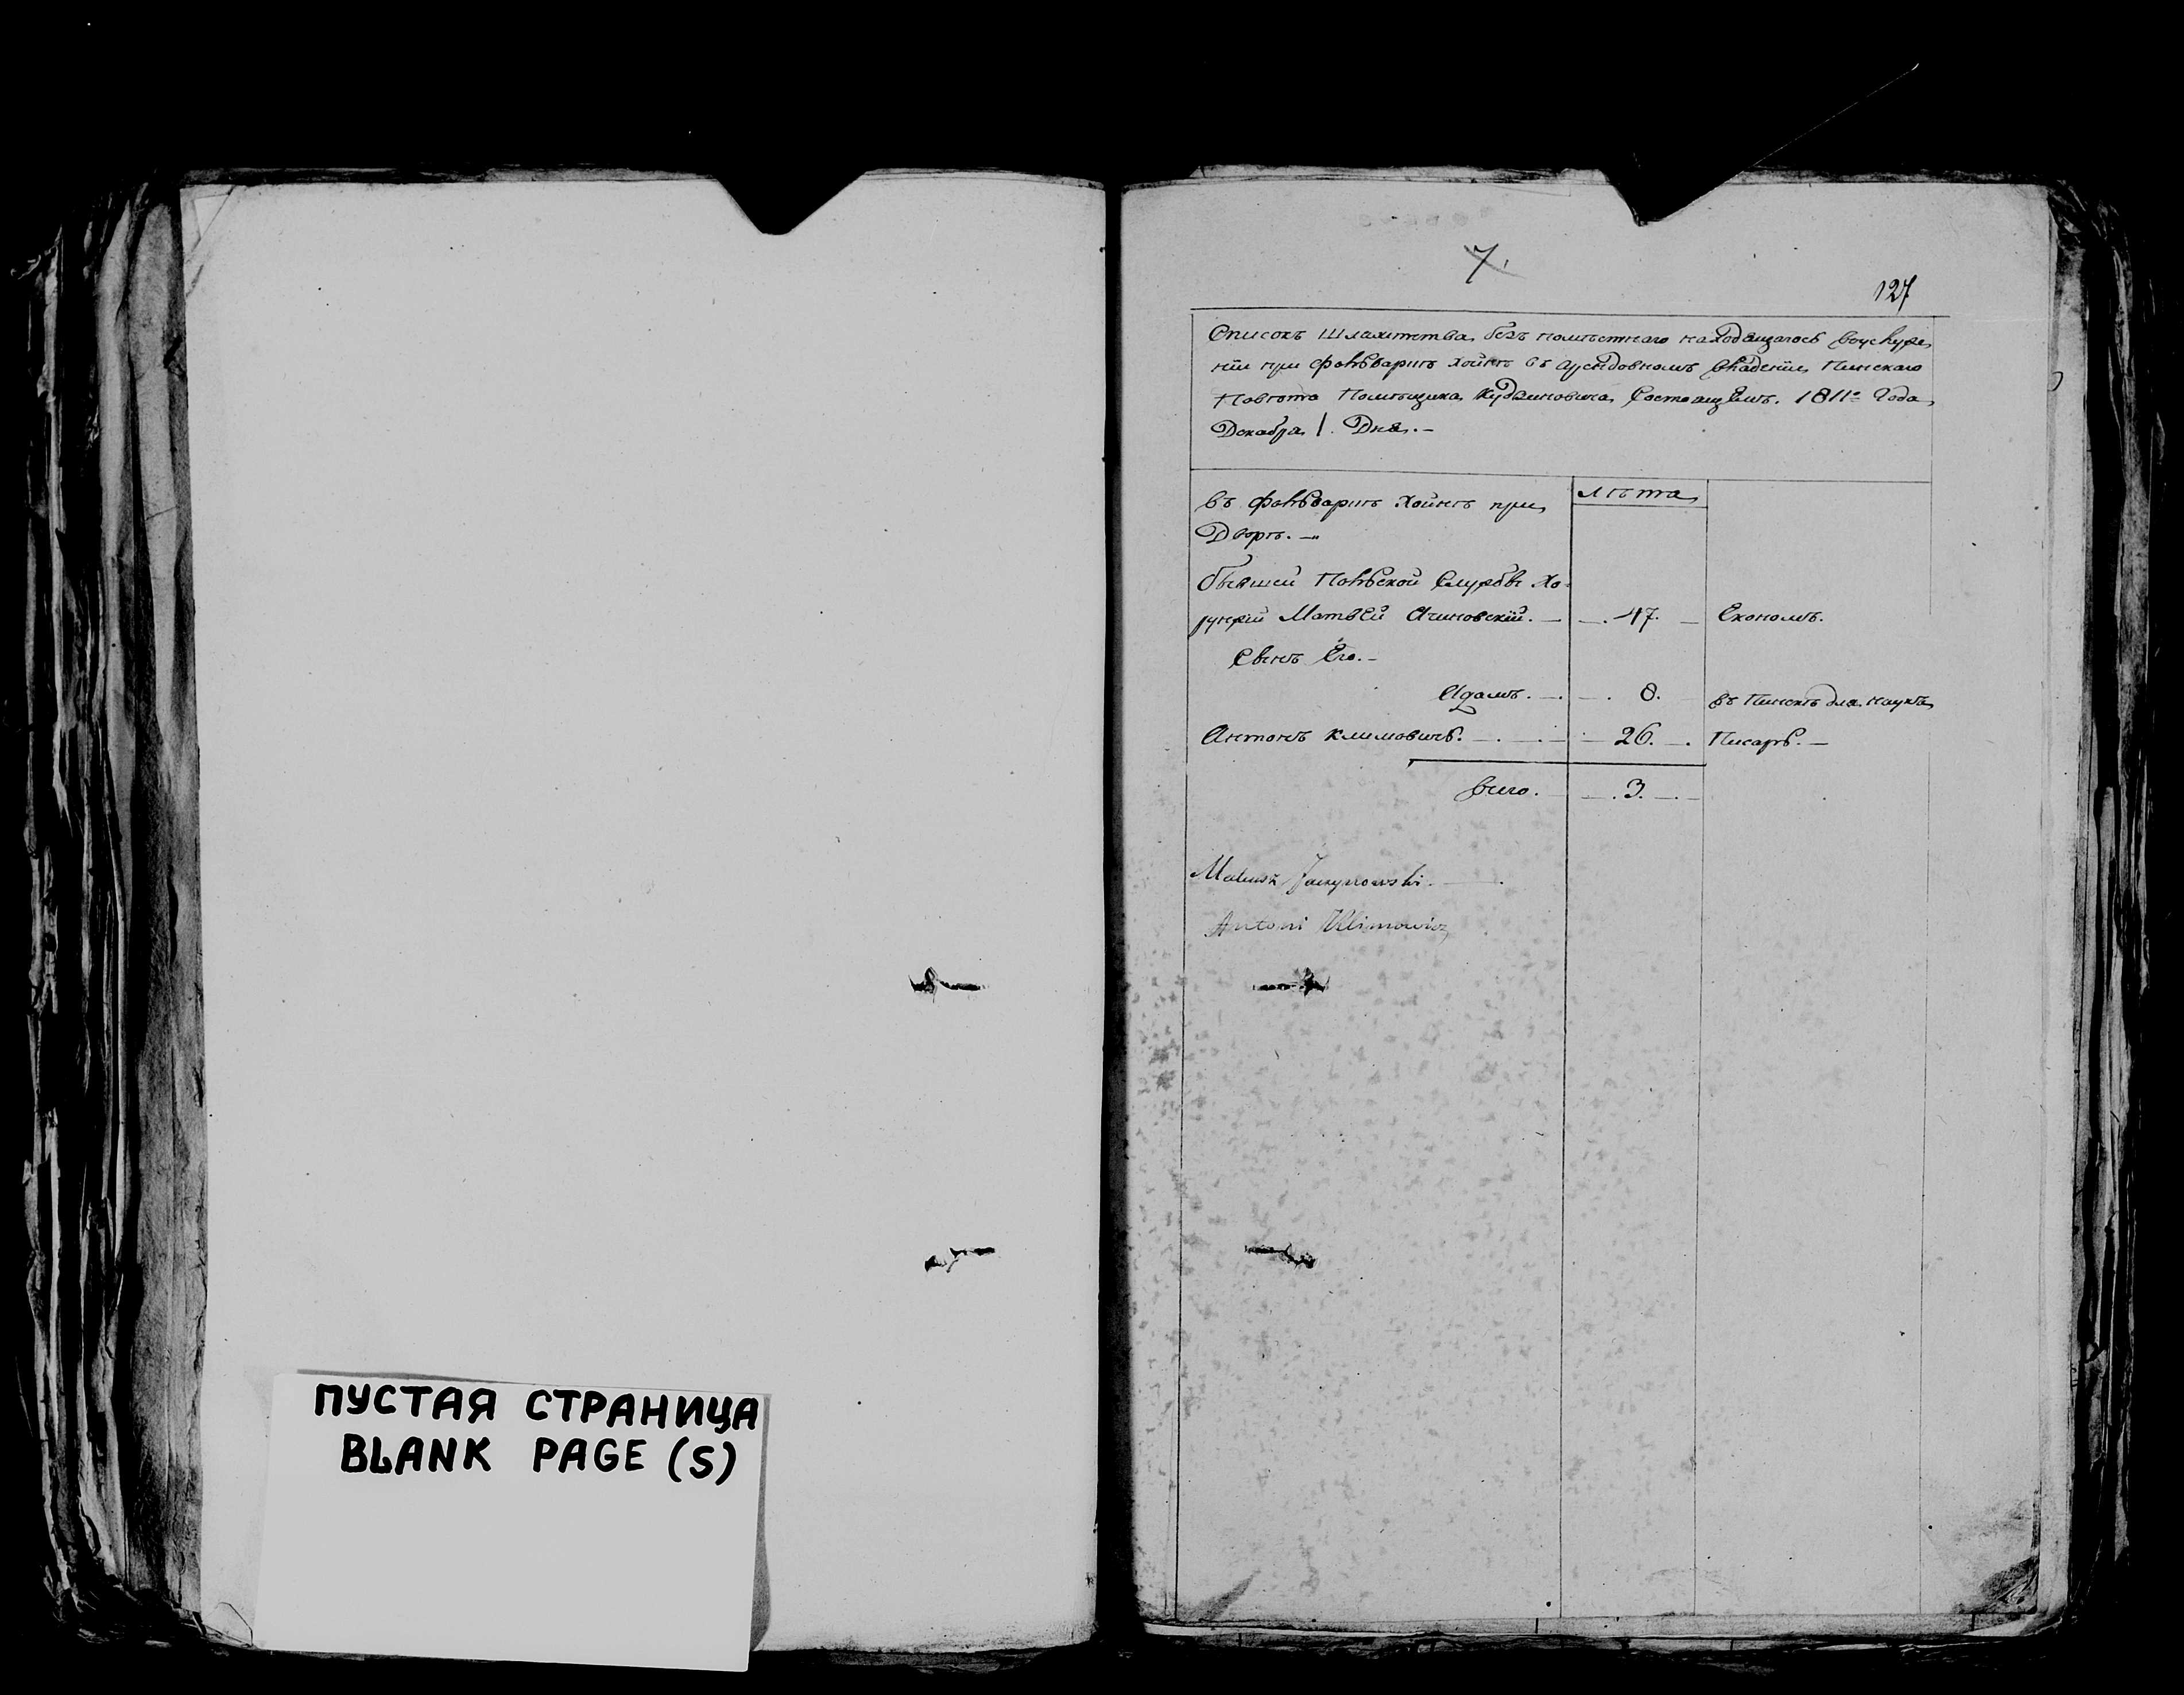 7.
127
Списокъ Шляхетства безъ поместнаго находящагося
нїи при фольварке Хойне въ Арендовномъ Владенїи Пинскаго
Повѣта Помѣщика Состоящемъ. 1811го Года
Декабря 1. Дня. —
въ фольварке Хойне при
Дворѣ. —
Лѣта
бывшей Польской Службы Хо-
рунжїй Матвей Ячиновскїй. — 47. — Економъ.
Сынъ Его. —
Адамъ. — 8. въ Пинскѣ для наукъ
Антонъ Климовичь. — 26. — Писарь. —
всего. — 3. —
Mateusz Jaczynowski. —
Antoni Klimowicz
ПУСТАЯ СТРАНИЦА
BLANK PAGE (S)